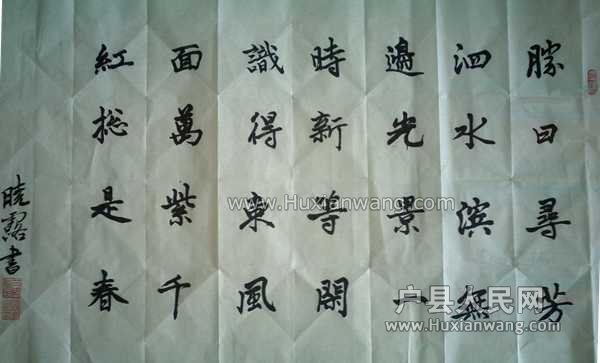 勝日尋芳
泗水滨無
邊光景一
時新等閑
識得東風
面萬紫千
紅揔是春
晓露書
www.Huxianwang.com
户县人民网
www.Huxianwang.com